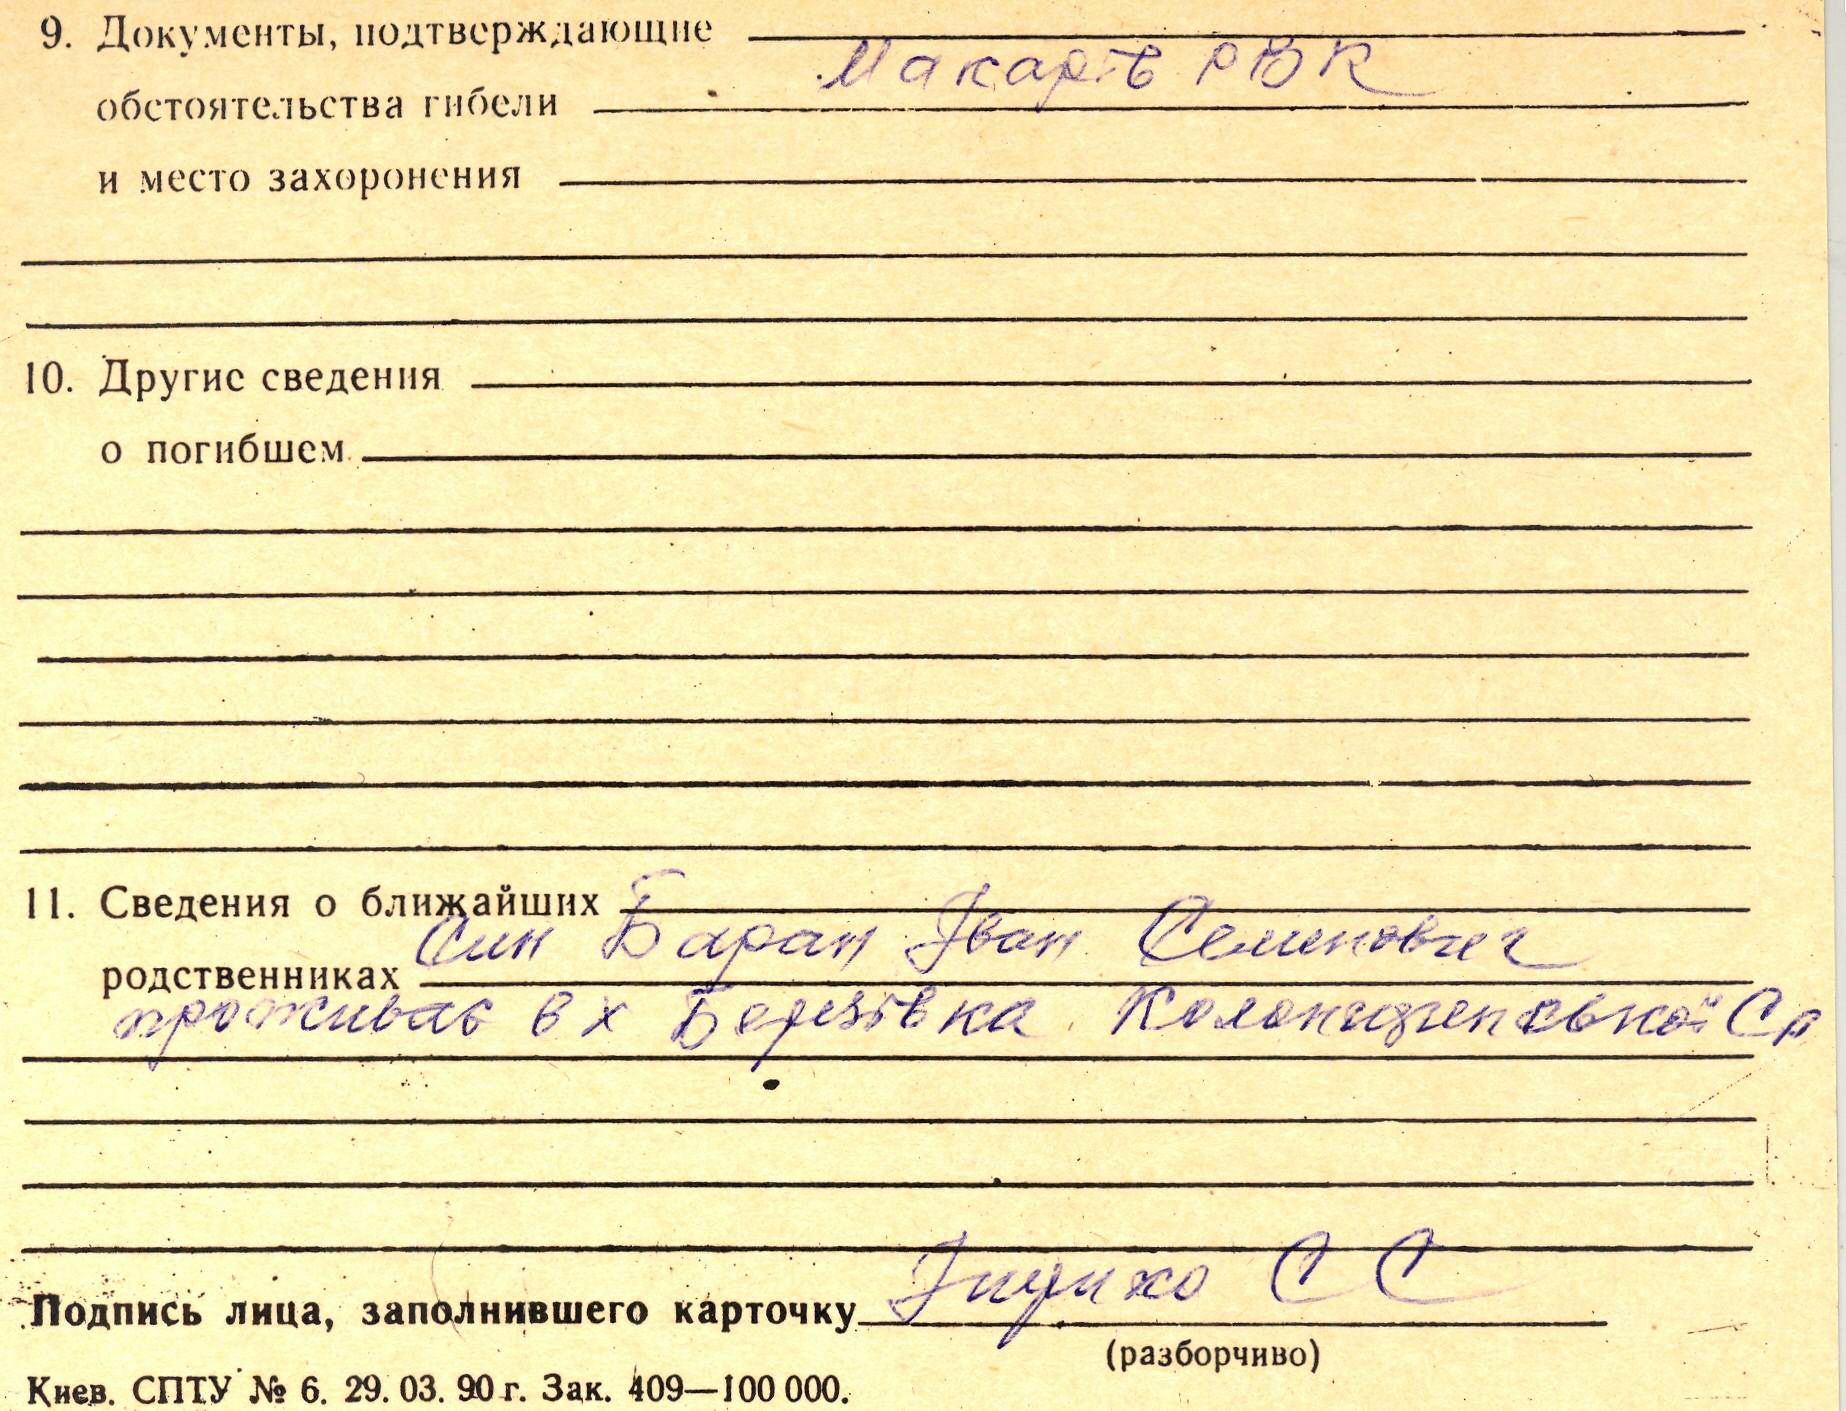 9. Документы, подтверждающие
Макарів РВК
обстоятельства гибели
и место захоронения
10. Другие сведения
о погибшем
11. Сведения о ближайших
Син Баран Іван Семенович
родственниках
проживає в х Березівка
Подпись лица, заполнившего карточку С С
(разборчиво)
Киев. СПТУ № 6. 29. 03. 90 г. Зак. 409—100 000.